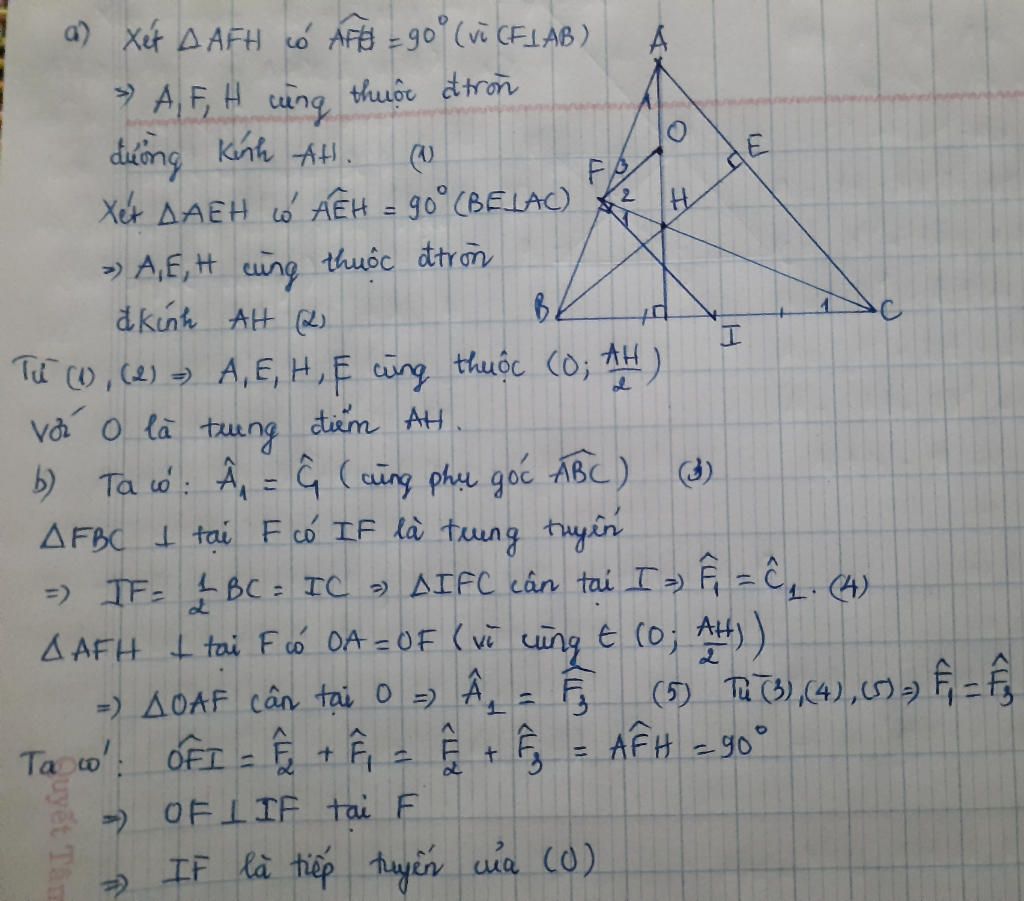 a) Xét ΔAFH có AFH = 90° (vì CF⊥AB)
=> A, F, H cùng thuộc đtròn
đường kính AH. (1)
Xét ΔAEH có AÊH = 90° (BE⊥AC)
=> A, E, H cùng thuộc đtròn
đkính AH (2)
Từ (1), (2) => A, E, H, F cùng thuộc (O; AH/2)
Với O là trung điểm AH.
b) Ta có: Â₁ = Ĉ₁ (cùng phụ góc ABC) (3)
ΔFBC ⊥ tại F có IF là trung tuyến
=> IF = 1/2 BC = IC => ΔIFC cân tại I => F̂₁ = Ĉ₁. (4)
ΔAFH ⊥ tại F có OA = OF (vì cùng ∈ (O; AH/2))
=> ΔOAF cân tại O => Â₁ = F̂₃ (5) Từ (3), (4), (5) => F̂₁ = F̂₃
Ta có: OF̂I = F̂₂ + F̂₁ = F̂₂ + F̂₃ = AF̂H = 90°
=> OF ⊥ IF tại F
=> IF là tiếp tuyến của (O)
A
1
O
E
F
3
2
1
H
B
I
1
C
Quyết Tâm